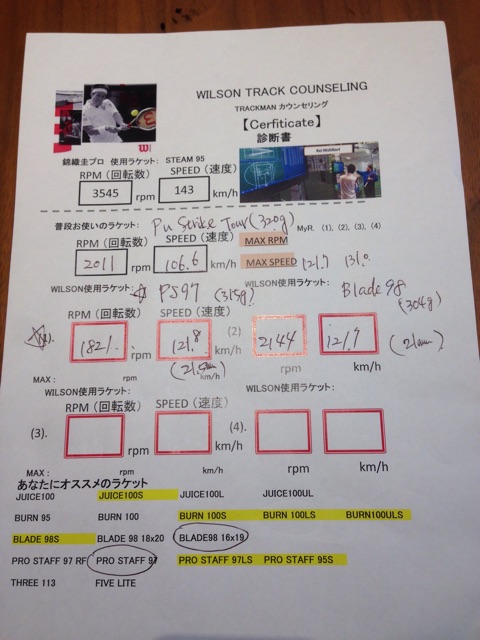 WILSON TRACK COUNSELING
TRACKMAN カウンセリング
【Cerfiticate】
診断書
錦織圭プロ 使用ラケット: STEAM 95
RPM (回転数) SPEED (速度)
3545 rpm 143 km/h
普段お使いのラケット: Pu Strike Tour (320g) MyR. (1), (2), (3), (4)
RPM (回転数) SPEED (速度) MAX RPM
2011 rpm 106.6 km/h MAX SPEED 121.7 131.0
WILSON使用ラケット: ☆ PS97 (315g) WILSON使用ラケット: Blade98 (304g)
RPM (回転数) SPEED (速度)
1821. rpm 121.8 km/h (2) 2144 rpm 121.7 km/h
MAX : rpm km/h
WILSON使用ラケット: WILSON使用ラケット:
RPM (回転数) SPEED (速度)
(3). rpm km/h (4). rpm km/h
MAX : rpm km/h rpm km/h
あなたにオススメのラケット
JUICE100 JUICE100S JUICE100L JUICE100UL
BURN 95 BURN 100 BURN 100S BURN 100LS BURN100ULS
BLADE 98S BLADE 98 18x20 BLADE98 16x19
PRO STAFF 97 RF PRO STAFF 97 PRO STAFF 97LS PRO STAFF 95S
THREE 113 FIVE LITE